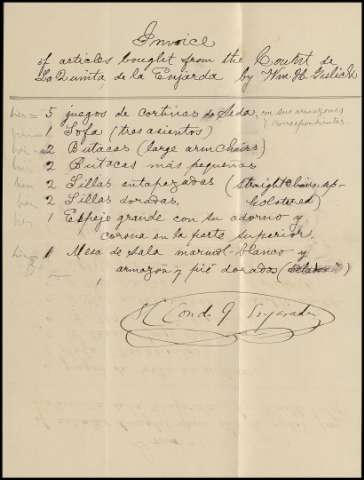 Invoice
of articles bought from the Count de
La Quinta de la Enjarada by Wm. H.
5 juegos de cortinas de Seda, con sus armazones
y correspondientes
1 Sofa (tres asientos)
2 Butacas (large armchairs)
2 Butacas más pequeñas
2 Sillas entapizadas (straight chairs, up-
holstered)
2 Sillas doradas,
1 Espejo grande con su adorno y
corona en la parte superior.
1 Mesa de Sala marmol-blanco y
armazon y pié dorados
El Conde